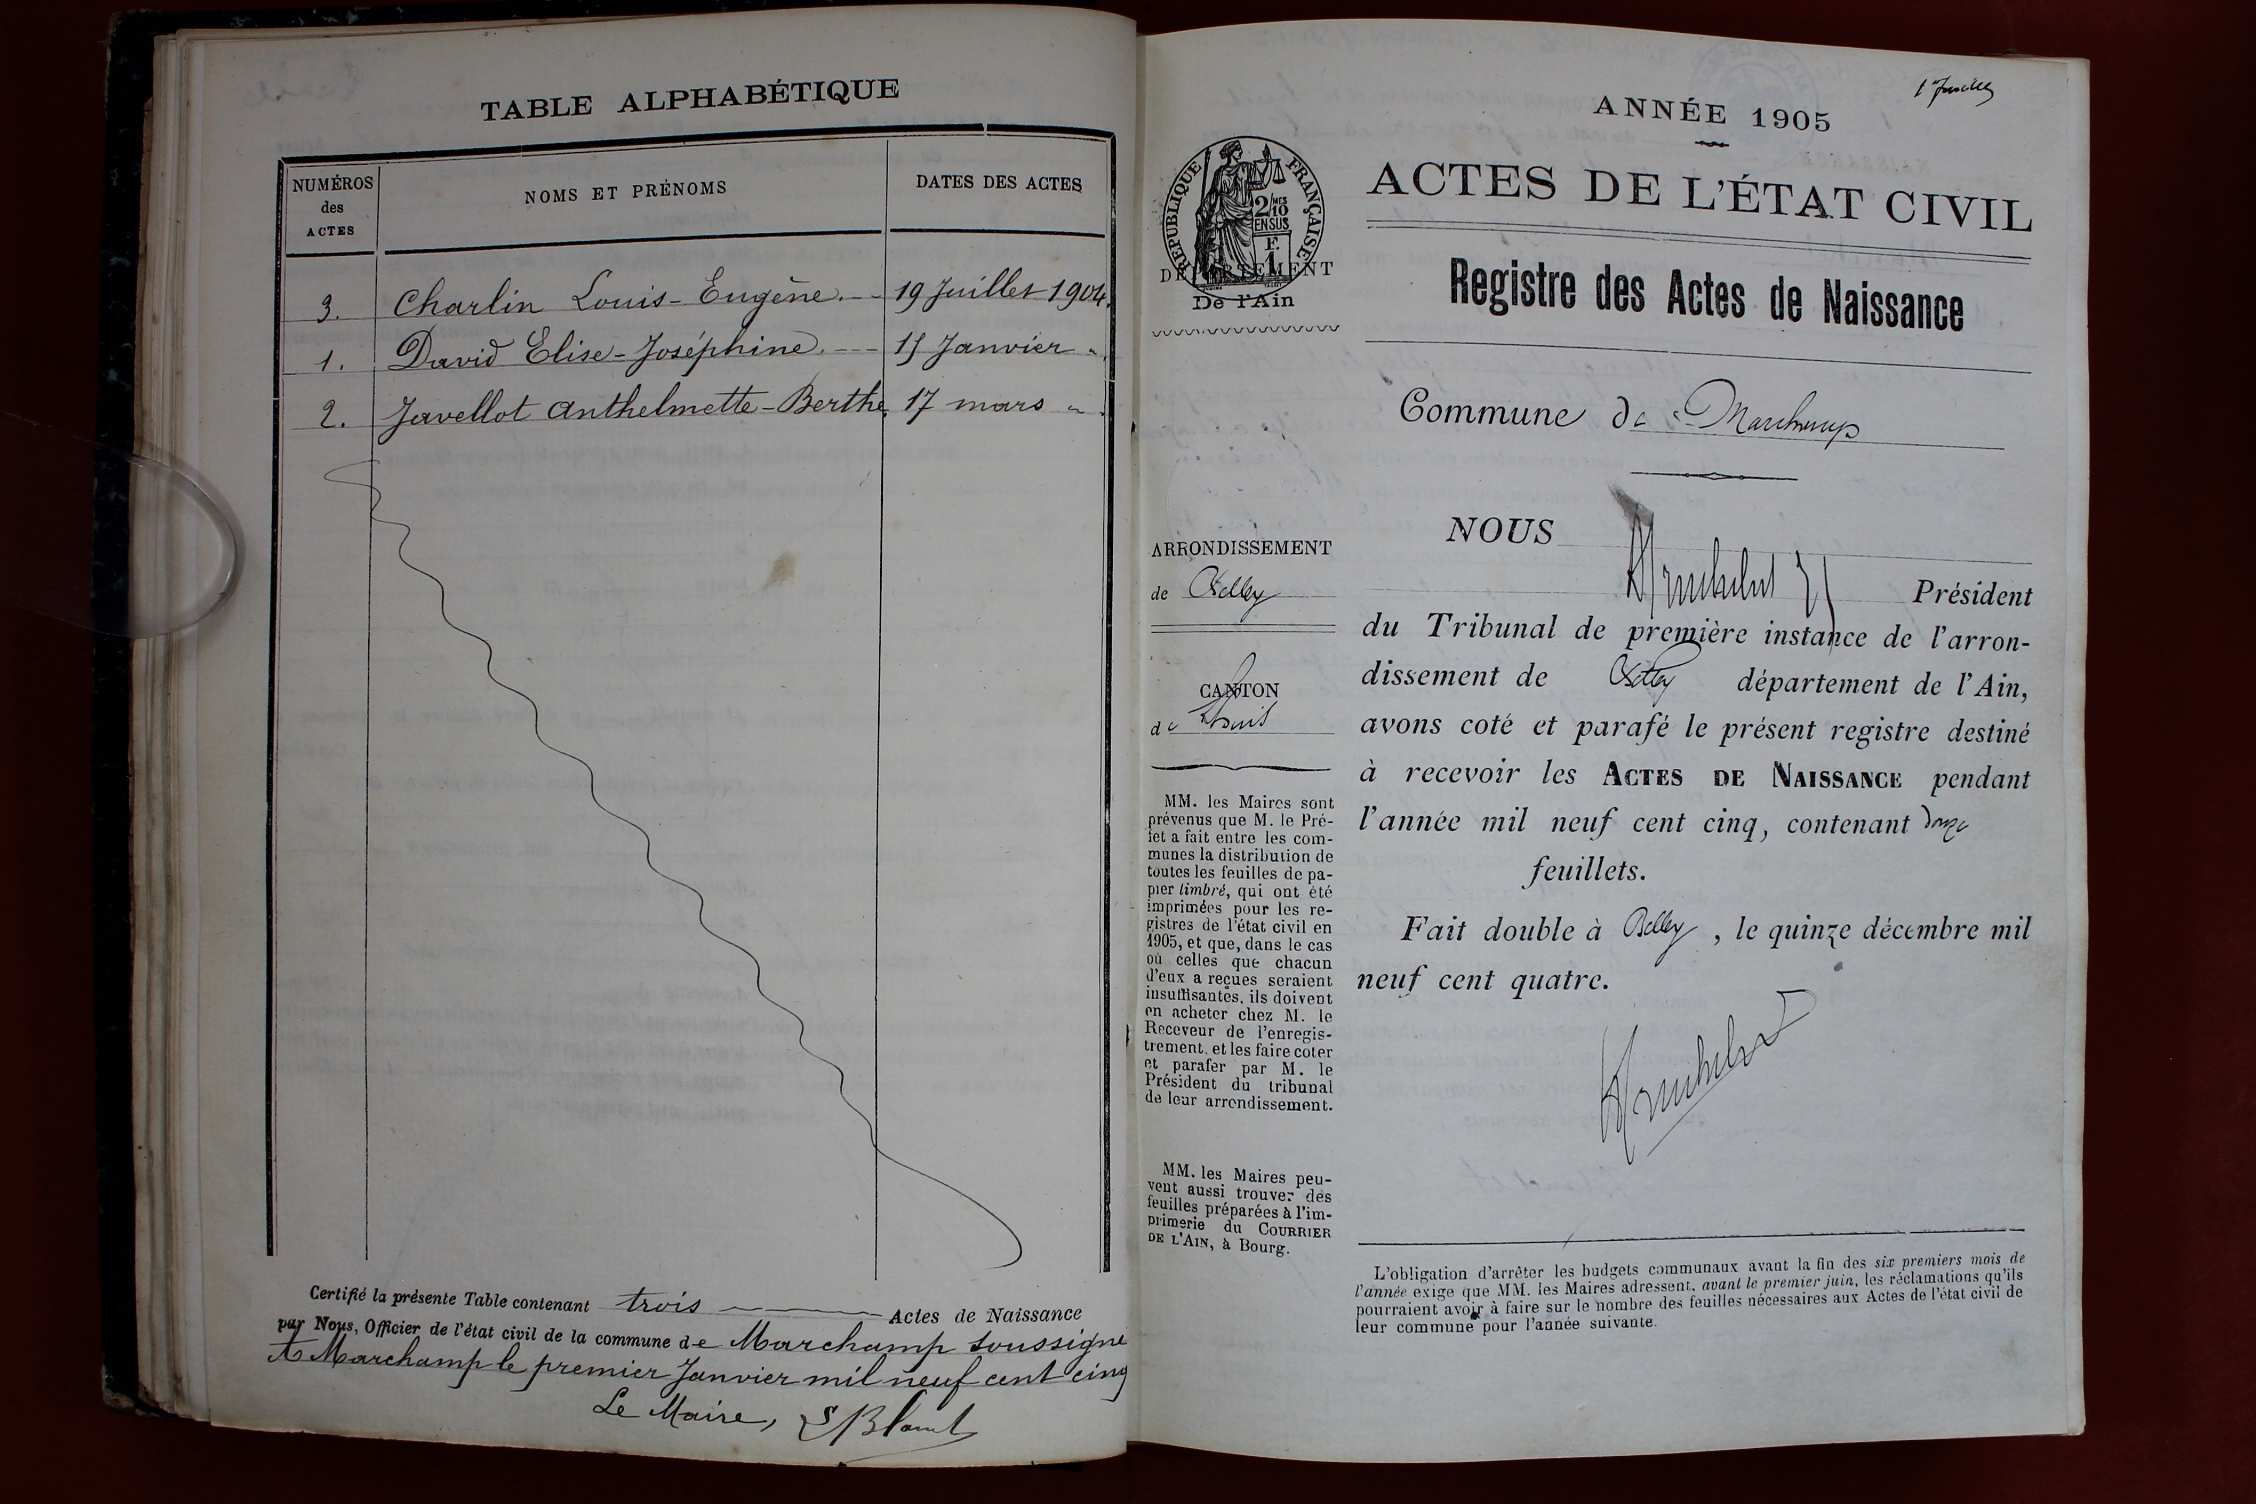 TABLE ALPHABÉTIQUE
NUMÉROS
des
ACTES
NOMS ET PRÉNOMS
DATES DES ACTES
3. Charlin Louis-Eugène. 19 Juillet 1904.
1. David Elise-Joséphine. 15 Janvier "
2. Javellot Anthelmette-Berthe, 17 mars "
Certifié la présente Table contenant trois Actes de Naissance
par Nous, Officier de l'état civil de la commune de Marchamp soussigné
A Marchamp le premier Janvier mil neuf cent cinq
Le Maire,
ANNÉE 1905
RÉPUBLIQUE FRANÇAISE
2/10 MES
EN SUS
1 F.
DÉPARTEMENT
De l'Ain
ACTES DE L'ÉTAT CIVIL
Registre des Actes de Naissance
Commune de Marchamp
ARRONDISSEMENT
de Belley
CANTON
de
MM. les Maires sont
prévenus que M. le Pré-
fet a fait entre les com-
munes la distribution de
toutes les feuilles de pa-
pier timbré, qui ont été
imprimées pour les re-
gistres de l'état civil en
1905, et que, dans le cas
où celles que chacun
d'eux a reçues seraient
insuffisantes, ils doivent
en acheter chez M. le
Receveur de l'enregis-
trement, et les faire coter
et parafer par M. le
Président du tribunal
de leur arrondissement.
MM. les Maires peu-
vent aussi trouver des
feuilles préparées à l'im-
primerie du COURRIER
DE L'AIN, à Bourg.
NOUS
Président
du Tribunal de première instance de l'arron-
dissement de Belley département de l'Ain,
avons coté et parafé le présent registre destiné
à recevoir les ACTES DE NAISSANCE pendant
l'année mil neuf cent cinq, contenant douze
feuillets.
Fait double à Belley, le quinze décembre mil
neuf cent quatre.
L'obligation d'arrêter les budgets communaux avant la fin des six premiers mois de
l'année exige que MM. les Maires adressent, avant le premier juin, les réclamations qu'ils
pourraient avoir à faire sur le nombre des feuilles nécessaires aux Actes de l'état civil de
leur commune pour l'année suivante.